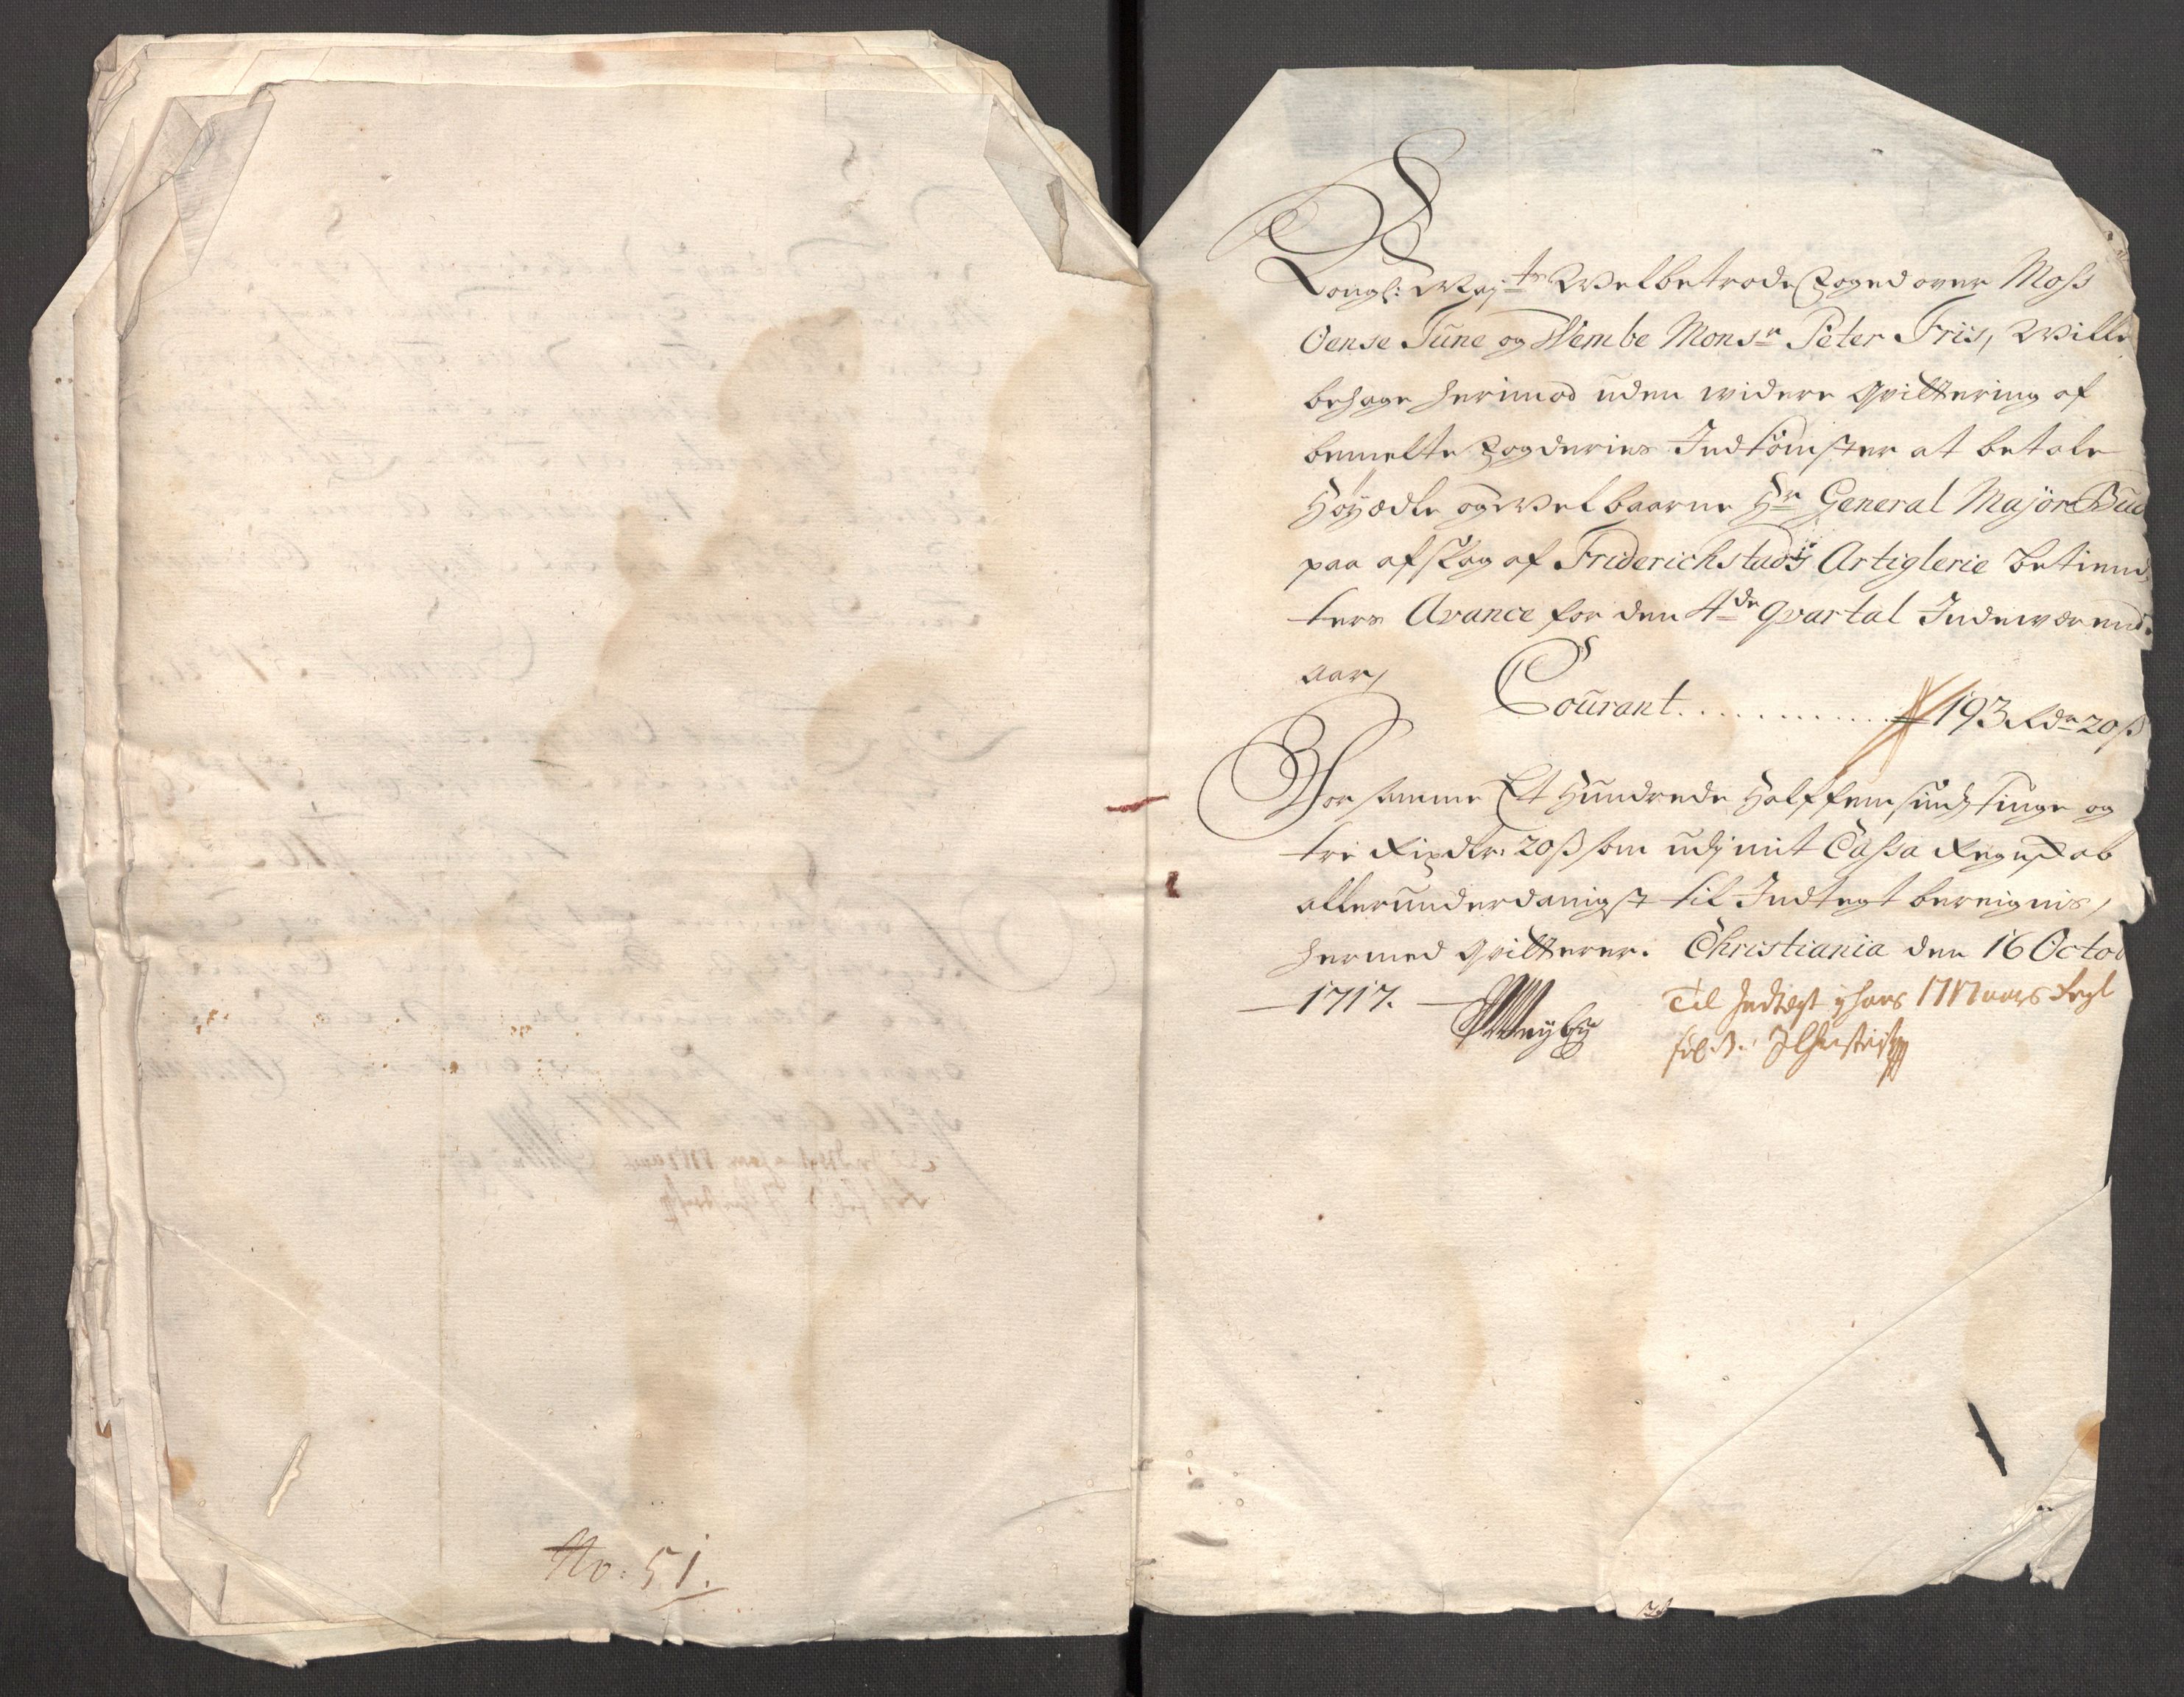 No: 51.
Kongl: May:ts Welbetrode Foged over Moss
Oense Tune og Wembe Monsr Peter Friis, Wille
behage herimod uden widere qvittering af
bemelte Fogderies Indkomster at betale
Høyædle og Welbaarne Hr General Major
paa afslag af Friderichstads Artiglerie betiend,
ters Avance for den 4de qvartal Indewærend.
aar,
Courant............. 193 Rdr 20ß
For samme Et Hundrede Halffemsindstiuge og
tre Rixdlr: 20ß som udj mit Cassa Regnskab
allerunderdanigst til Indtegt bereignis,
hermed qvitterer. Christiania den 16 Octob
1717.
Til Indtegt y hans 1717 aars Regl
fol. 3.